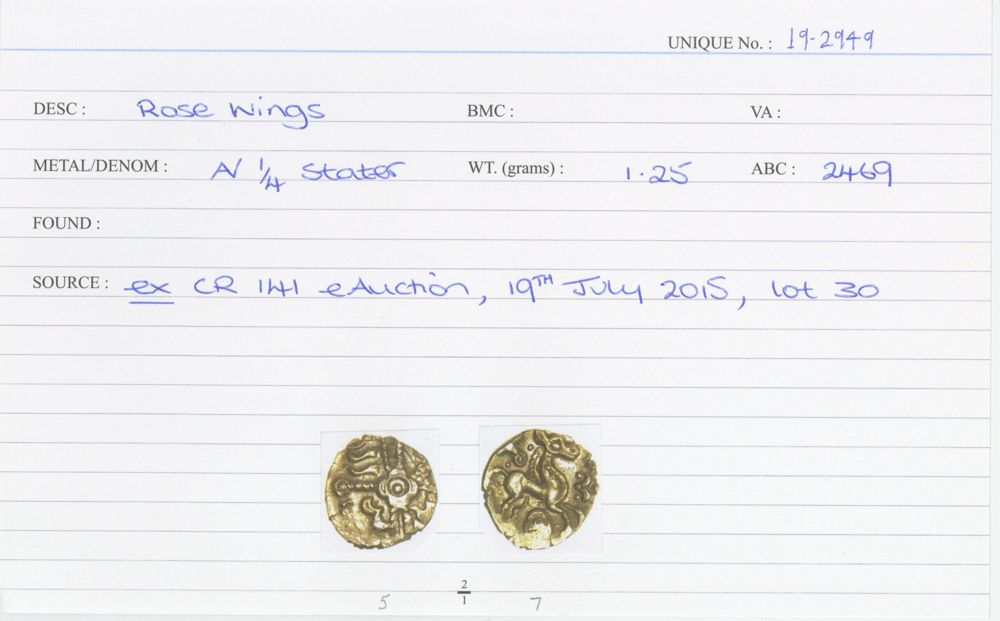 UNIQUE No. : 19-2949
DESC : Rose Wings BMC : VA :
METAL/DENOM : A/ 1/4 Stater WT. (grams) : 1.25 ABC : 2469
FOUND :
SOURCE : ex CR 141 eAuction, 19TH July 2015, lot 30
2/1
5 7